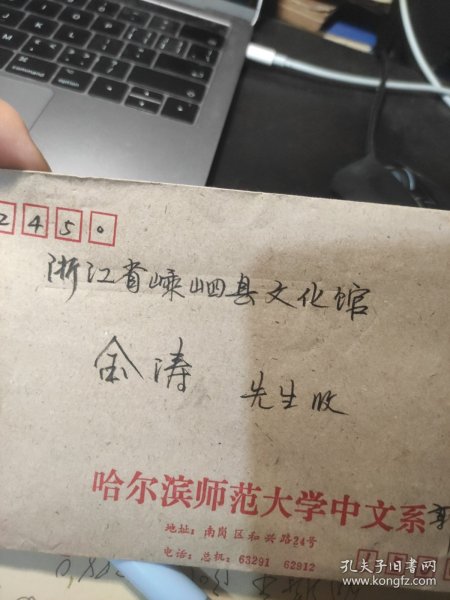 2450
浙江省嵊泗县文化馆
金涛 先生收
哈尔滨师范大学中文系
地址：南岗区和兴路24号
电话：总机：63291 62912
孔夫子旧书网
kongfz.com
control
option
command